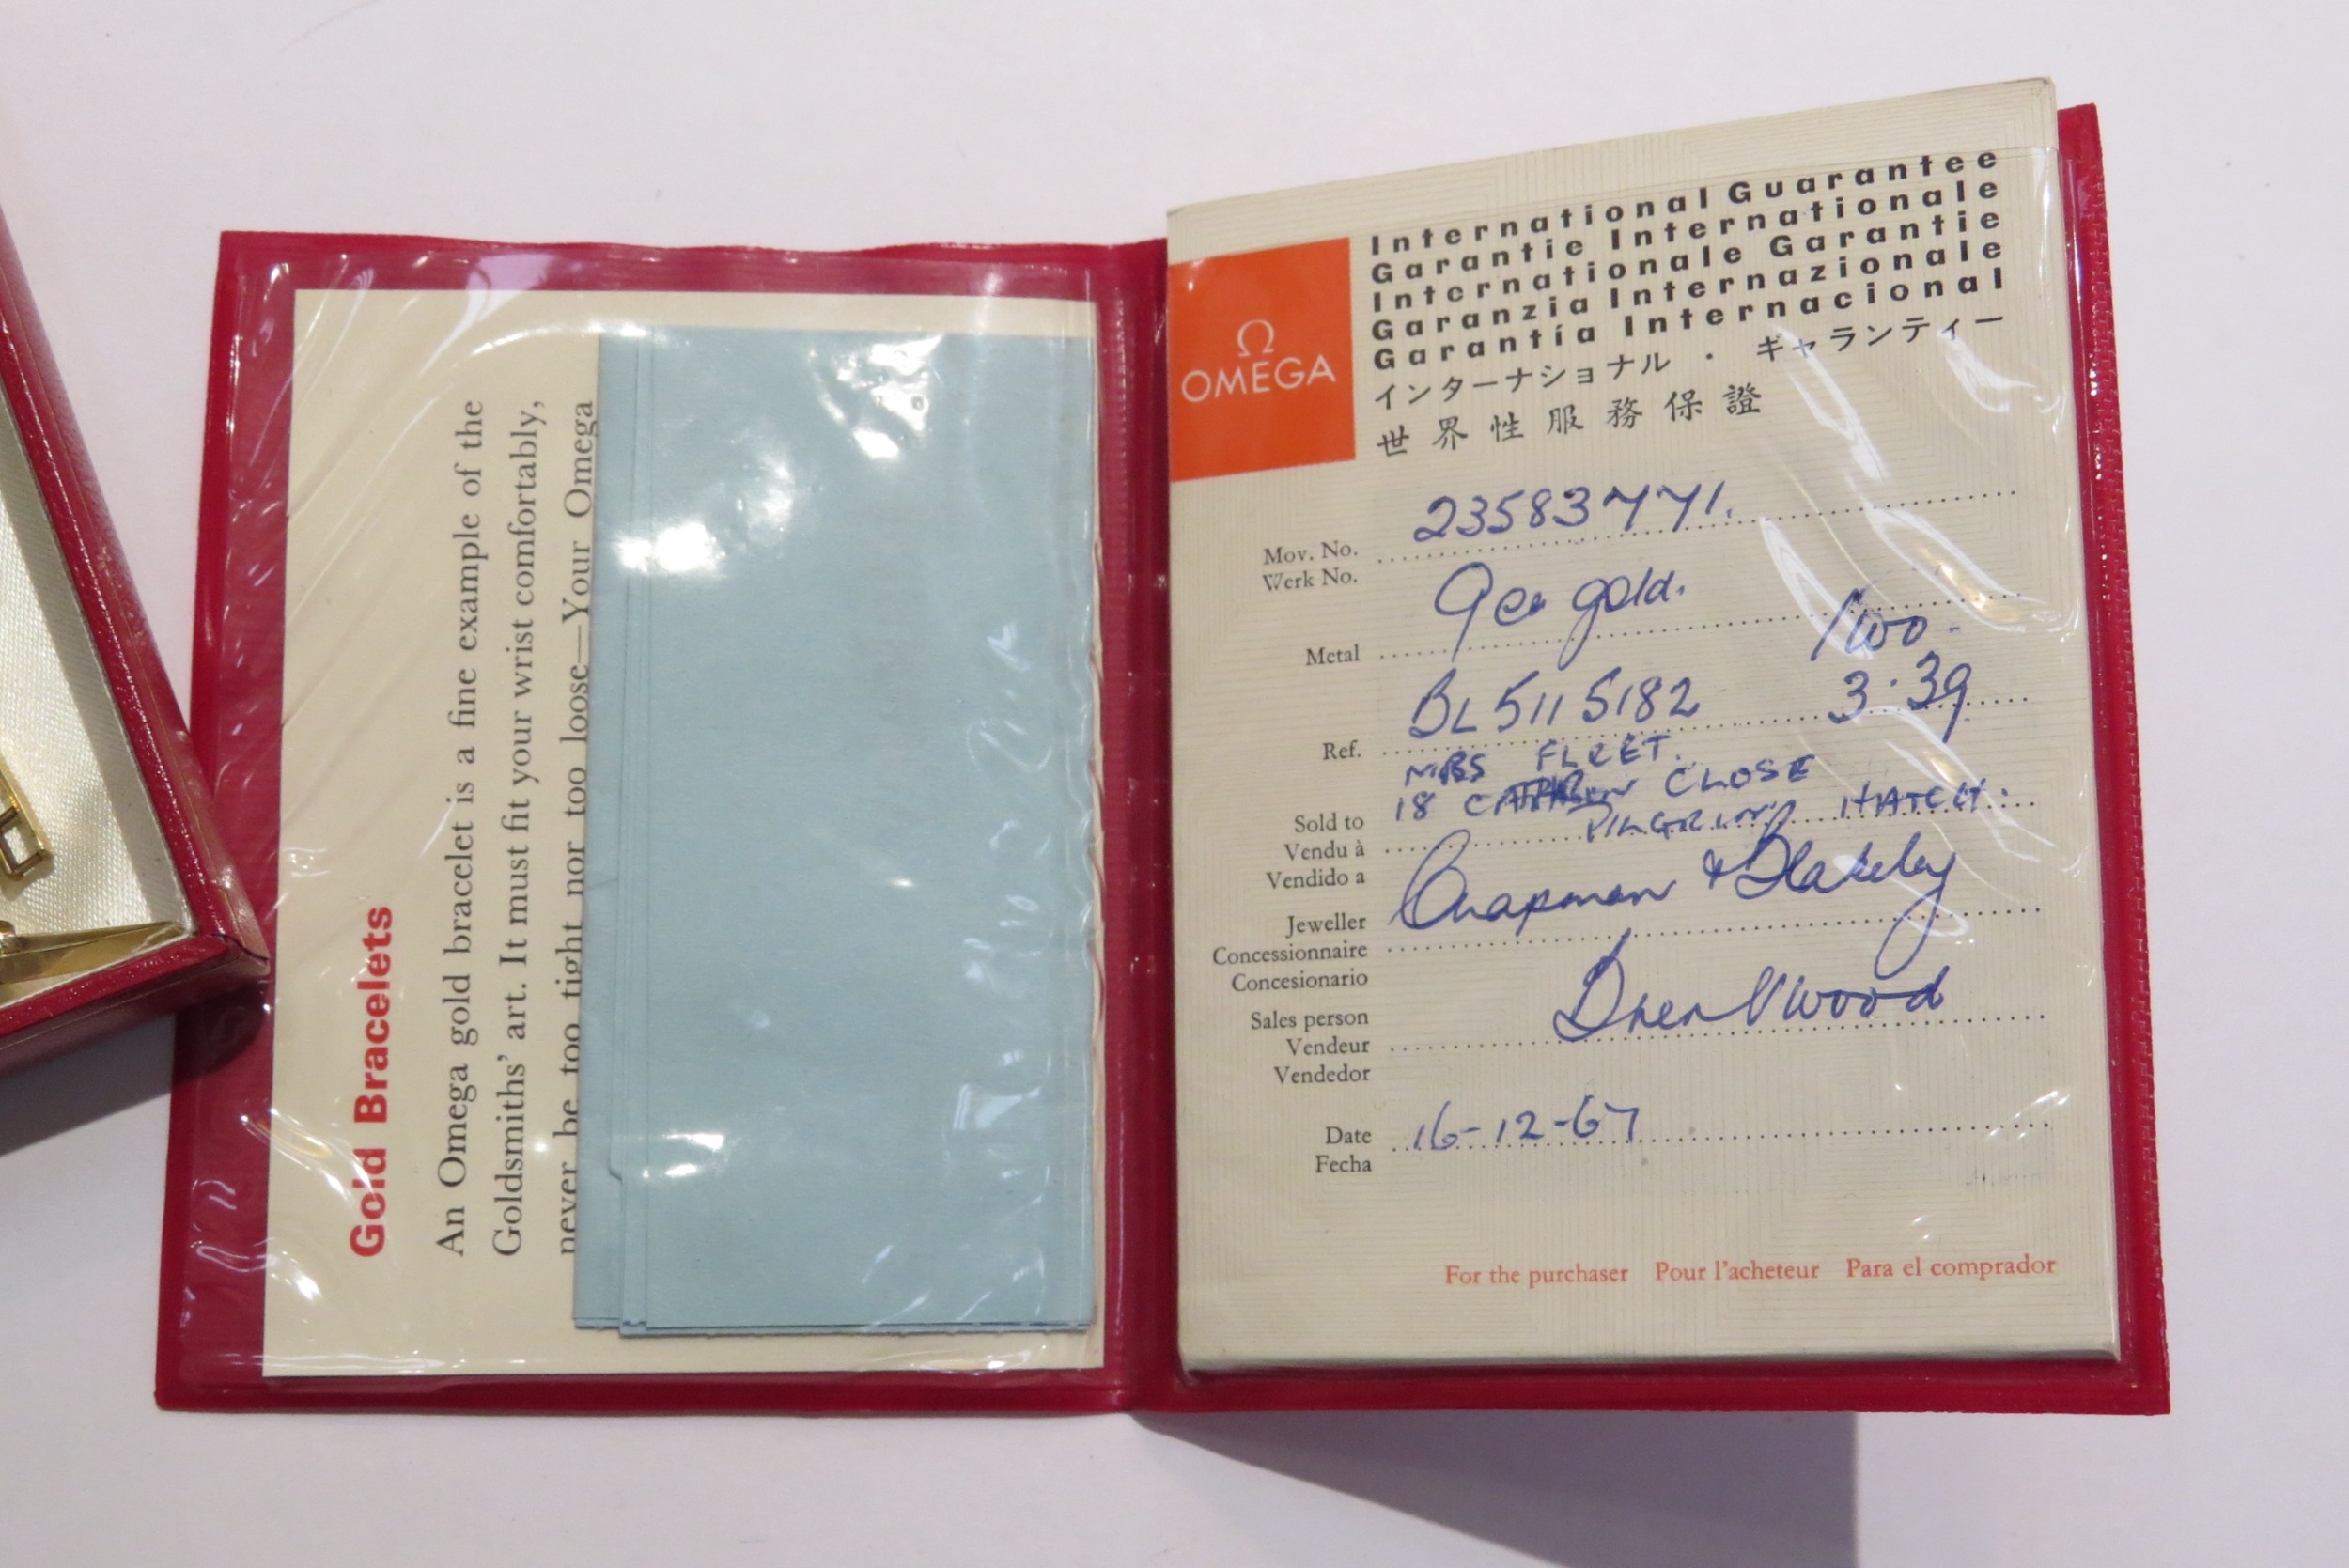 Gold Bracelets
An Omega gold bracelet is a fine example of the
Goldsmiths' art. It must fit your wrist comfortably,
never be too tight nor too loose—Your Omega
Ω
OMEGA
International Guarantee
Garantie Internationale
Internationale Garantie
Garanzia Internazionale
Garantía Internacional
インターナショナル・ギャランティー
世界性服務保證
Mov. No. 23583771.
Werk No.
Metal 9ct gold.
Ref. BL 5115182 3.39
MRS FLEET.
Sold to 18 CLOSE
Vendu à HATCH.
Vendido a
Jeweller Chapman & Blakeley
Concessionnaire
Concesionario
Sales person
Vendeur
Vendedor
Date 16-12-67
Fecha
For the purchaser Pour l'acheteur Para el comprador